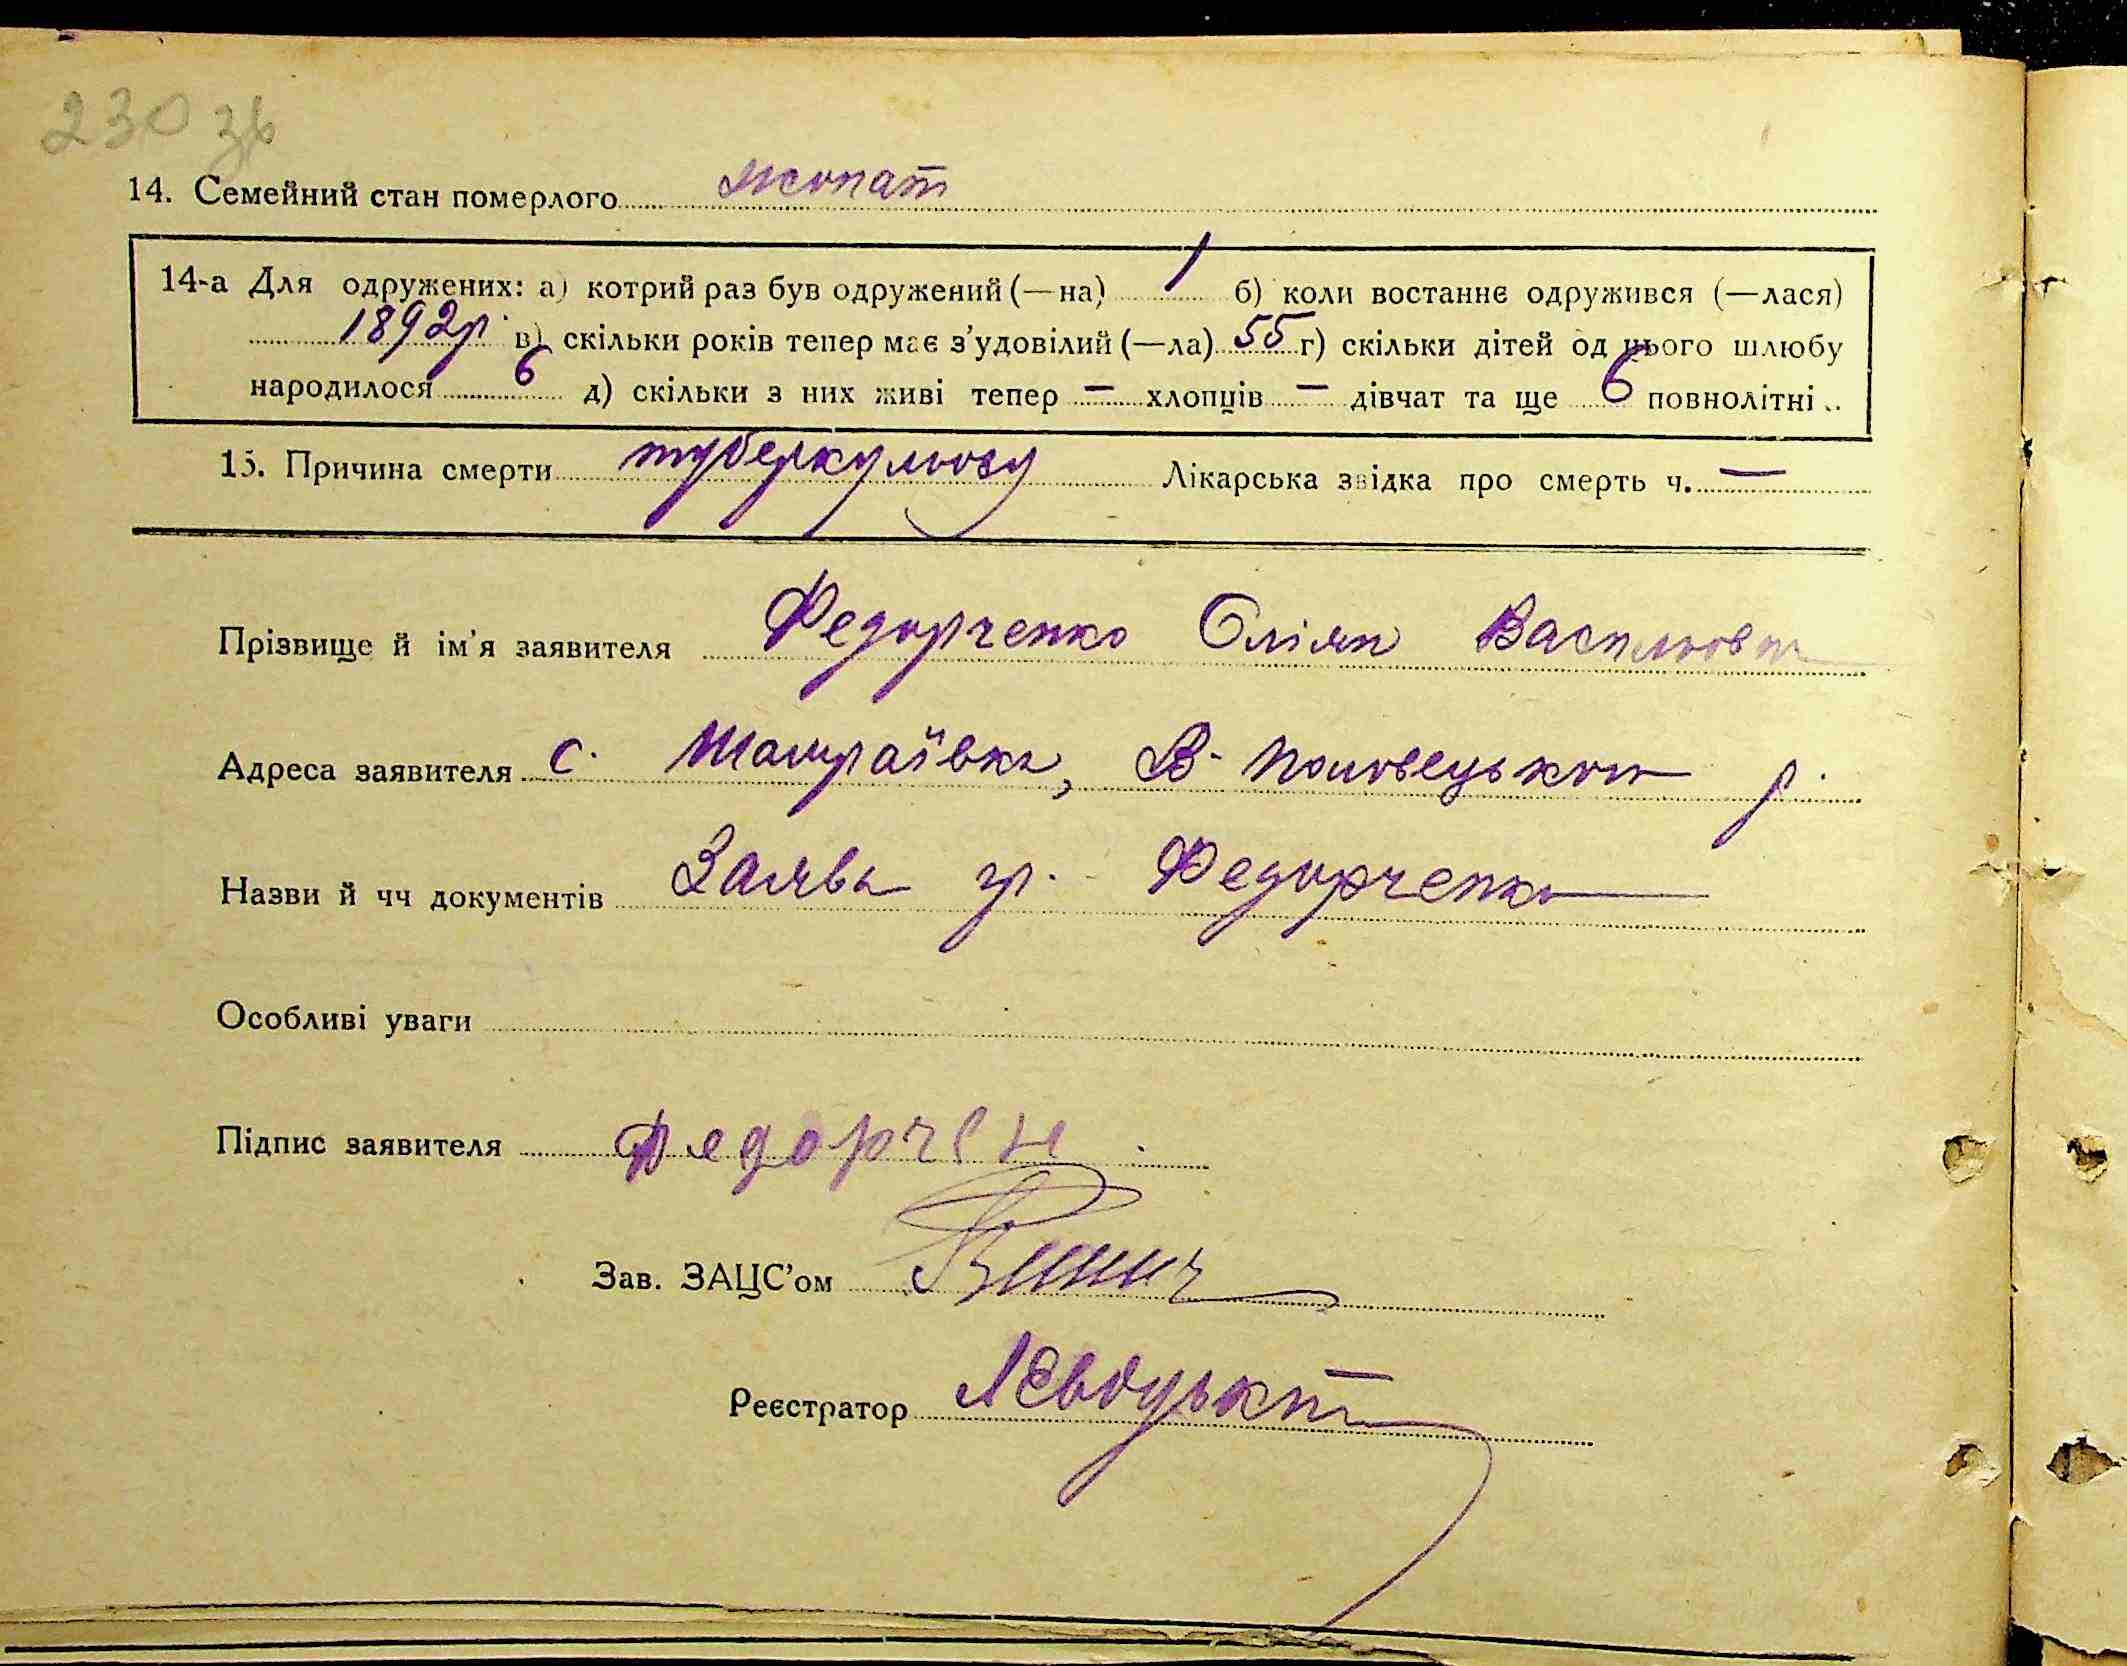 230 зв
14. Семейний стан померлого жонат
14-а Для одружених: а) котрий раз був одружений (—на) 1 б) коли востаннє одружився (—лася)
1892 р. в) скільки років тепер має з’удовілий (—ла) 55 г) скільки дітей од цього шлюбу
народилося 6 д) скільки з них живі тепер — хлопців — дівчат та ще 6 повнолітні..
15. Причина смерти туберкульозу Лікарська звідка про смерть ч. —
Прізвище й ім’я заявителя Федорченко Оліян Васильов
Адреса заявителя с. Шамраївка, В-Половецького р.
Назви й чч документів Заява гр. Федорченко
Особливі уваги
Підпис заявителя Федорчен
Зав. ЗАЦС’ом
Реєстратор